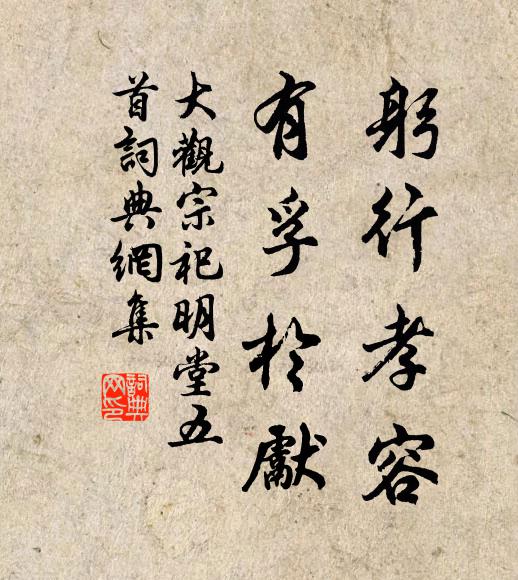 躬行孝容
有孚於獻
大觀宗祀明堂五
首詞典網集
詞典
网印